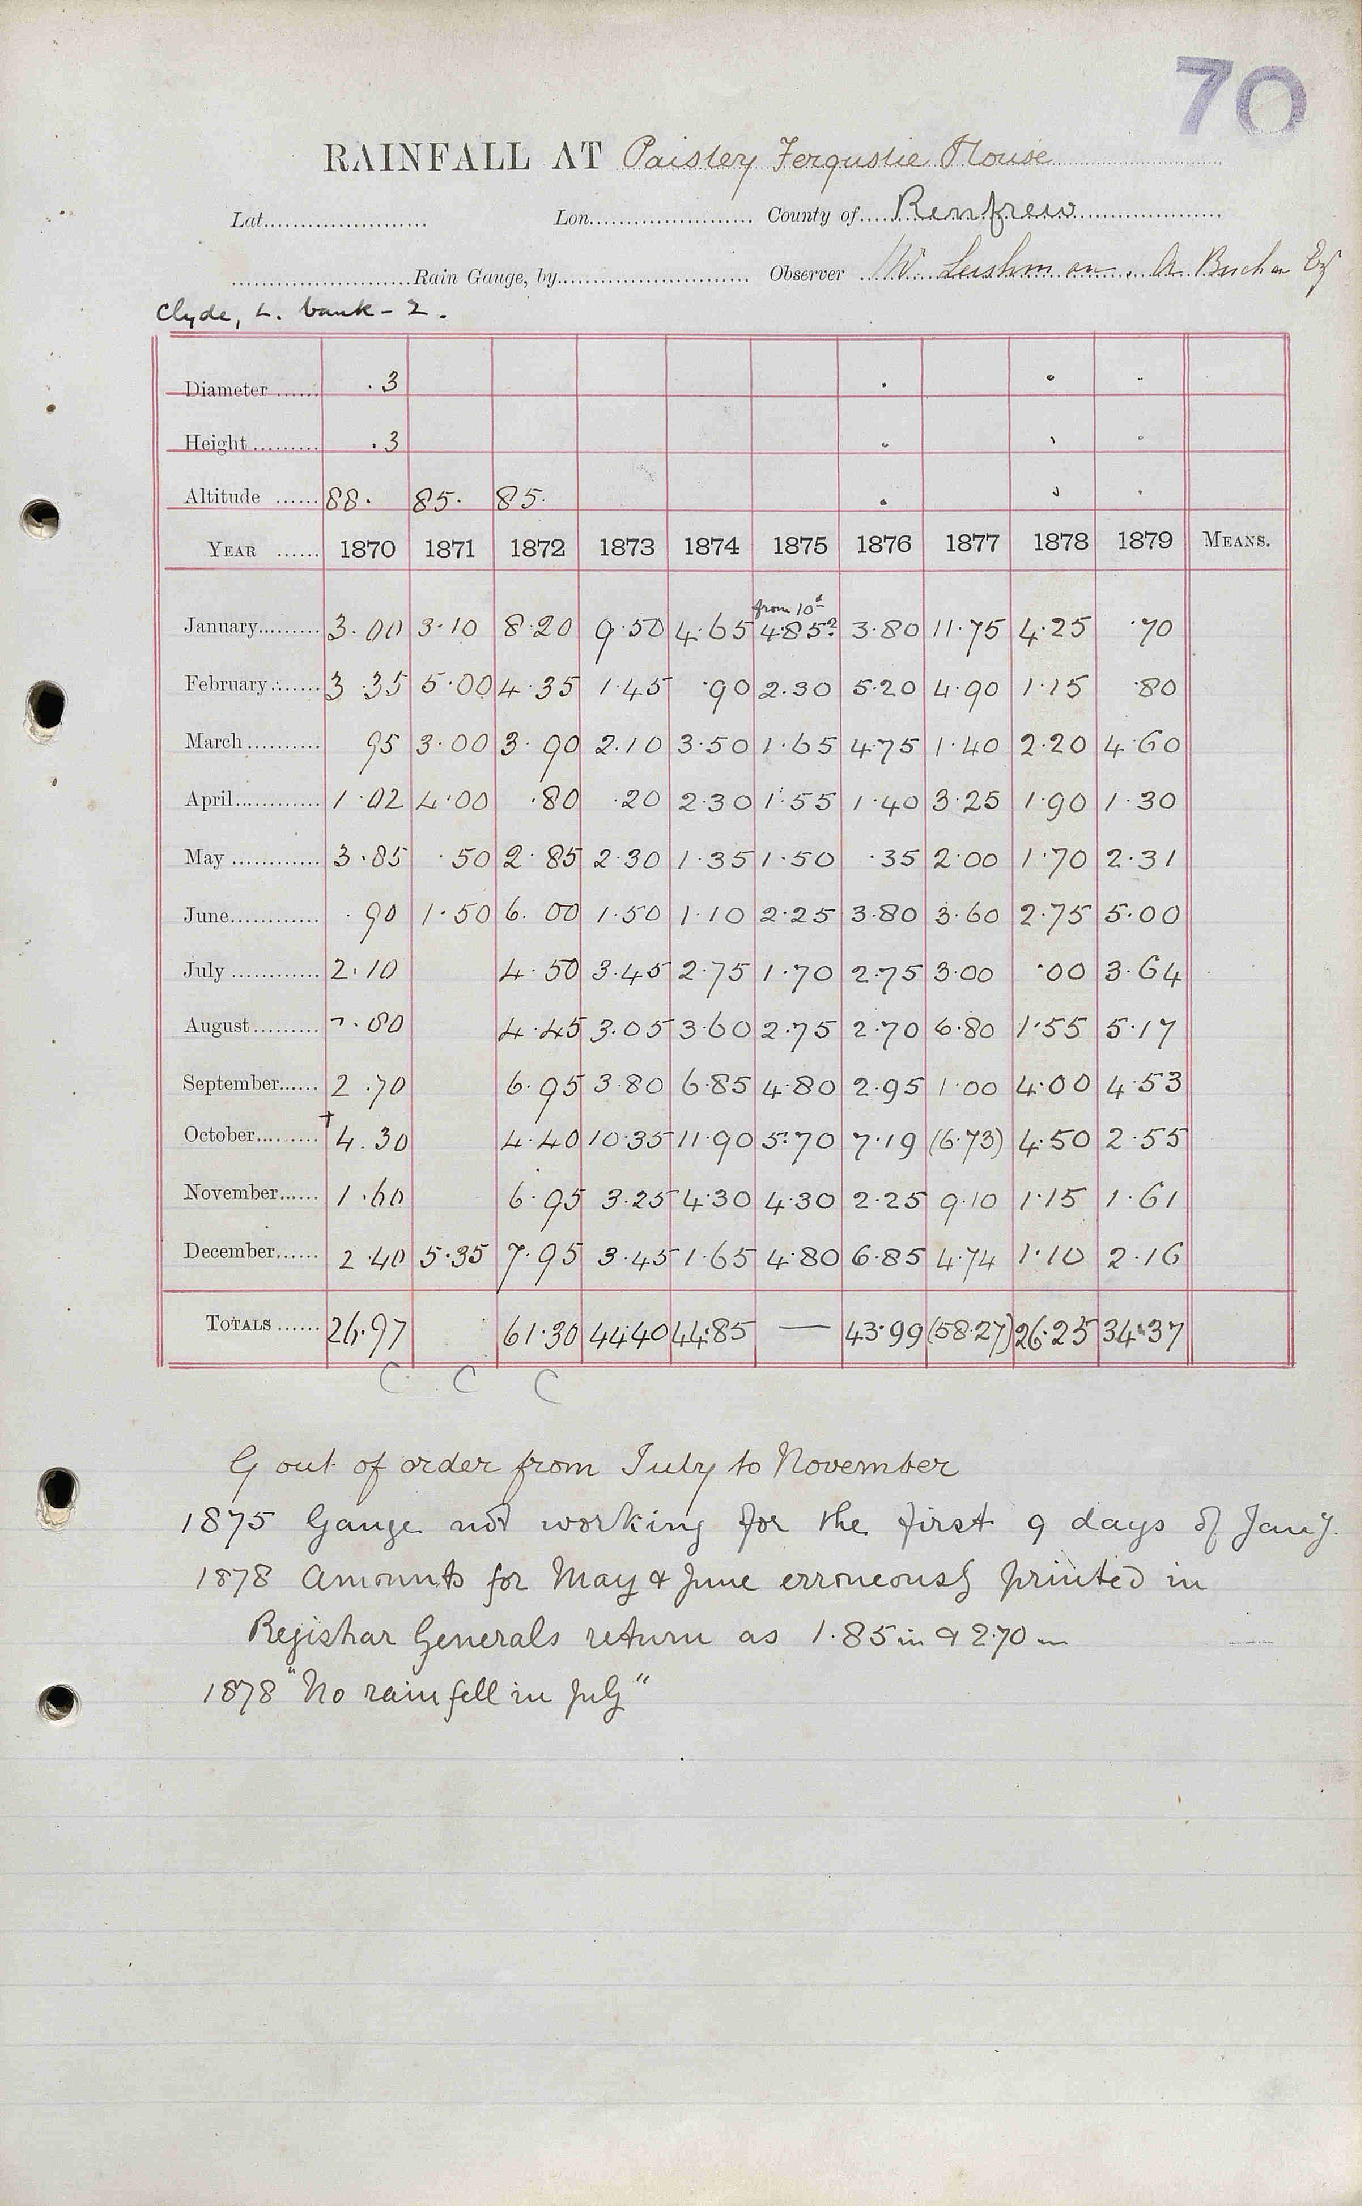 70
RAINFALL AT Paisley Fergustie House
Lat. Lon. County of Renfrew
Rain Gauge, by Observer W. Leishman. A. Buchan Esq
Clyde, L. bank - 2.
Diameter ...... .3
Height .......... .3
Altitude ...... 88. 85. 85.
YEAR ...... 1870 1871 1872 1873 1874 1875 1876 1877 1878 1879 MEANS.
from 10th
January......... 3.00 3.10 8.20 9.50 4.65 4.85? 3.80 11.75 4.25 .70
February........ 3.35 5.00 4.35 1.45 .90 2.30 5.20 4.90 1.15 .80
March .......... 95 3.00 3.90 2.10 3.50 1.65 4.75 1.40 2.20 4.60
April............ 1.02 4.00 .80 .20 2.30 1.55 1.40 3.25 1.90 1.30
May ............ 3.85 .50 2.85 2.30 1.35 1.50 .35 2.00 1.70 2.31
June............ .90 1.50 6.00 1.50 1.10 2.25 3.80 3.60 2.75 5.00
July ............ 2.10 4.50 3.45 2.75 1.70 2.75 3.00 .00 3.64
August ......... .80 4.45 3.05 3.60 2.75 2.70 6.80 1.55 5.17
September...... 2.70 6.95 3.80 6.85 4.80 2.95 1.00 4.00 4.53
October......... † 4.30 4.40 10.35 11.90 5.70 7.19 (6.73) 4.50 2.55
November...... 1.60 6.95 3.25 4.30 4.30 2.25 9.10 1.15 1.61
December...... 2.40 5.35 7.95 3.45 1.65 4.80 6.85 4.74 1.10 2.16
TOTALS ...... 26.97 61.30 44.40 44.85 — 43.99 (58.27) 26.25 34.37
C C C
G out of order from July to November
1875 Gauge not working for the first 9 days of Jany.
1878 Amounts for May & June erroneously printed in
Registrar Generals return as 1.85 in & 2.70 in
1878 "No rain fell in July"